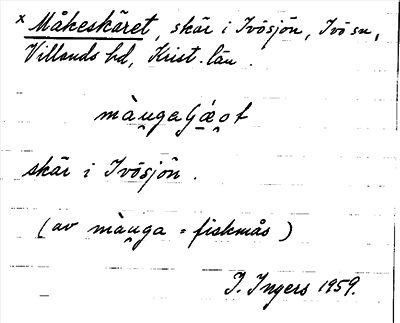 x Måkeskäret, skär i Ivösjön, Ivö sn,
Villands hd, Krist. län.
skär i Ivösjön.
(av màu̯ga = fiskmås)
I. Ingers 1959.